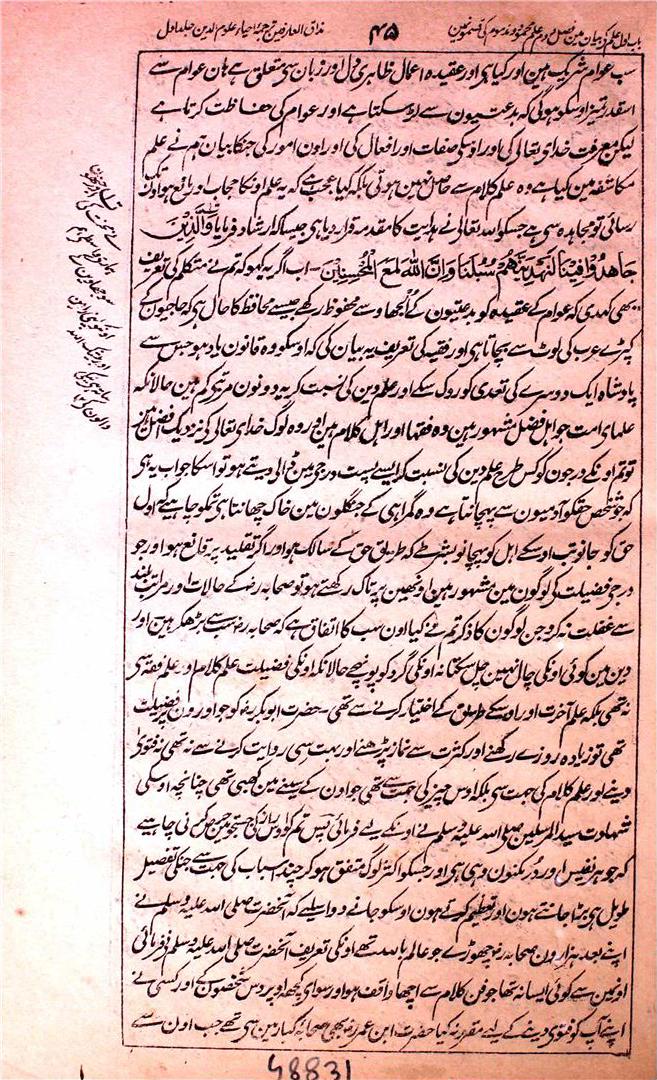 باب اول علم کے بیان مین فصل دوم علم محمود و مذموم کی قسمونمین ۴۵ مذاق العارفین ترجمۂ احیاء علوم الدین جلد اول
سب عوام شریک ہین اور کیا ہی اور عقیدہ اعمال ظاہری دل اور زبان سی متعلق ہے ہان عوام سے
اسقدر تمیز اوسکو ہوگی کہ بدعتیون سے لڑ سکتا ہے اور عوام کی حفاظت کرتا ہے
لیکن معرفت خدای تعالی کی اور اوسکی صفات اور افعال کی اور اون امور کی جنکا بیان ہم نے علم
مکاشفہ مین کیا ہے وہ علم کلام سے حاصل نہین ہوتی بلکہ کیا عجب ہے کہ یہ علم اونکا حجاب اور مانع ہو اون تک
رسائی تو مجاہدہ ہی سے ہے جسکو اللہ تعالی نے ہدایت کا مقدمہ قرار دیا ہی جیسا کہ ارشاد فرمایا وَالَّذِیْنَ
جَاهَدُوْا فِیْنَا لَنَهْدِیَنَّهُمْ سُبُلَنَا وَاِنَّ اللهَ لَمَعَ الْمُحْسِنِیْنَ - اب اگر یہ کہو کہ تم نے متکلم کی تعریف
یہی کہدی کہ عوام کے عقیدہ کو بدعتیون کے اُلجھاو سے محفوظ رکھے جیسے محافظ کا حال ہی کہ حاجیون کے
کپڑے عرب کی لوٹ سے بچاتا ہی اور فقیہ کی تعریف یہ بیان کی کہ اوسکو وہ قانون یاد ہو جس سے
پادشاہ ایک دوسرے کی تعدی کو روک سکے اور علم دین کی نسبت کر یہ دونون مرتبی کم ہین حالانکہ
علمای امت جو اہل فضل مشہور ہین وہ فقہا اور اہل کلام ہین اور وہ لوگ خدای تعالی کی نزدیک افضل ہین
تو تم اونکے درجون کو کس طرح علم دین کی نسبت کر ایسے پست درجی مین ڈالی دیتے ہو تو اسکا جواب یہ ہی
کہ جو شخص حق کو آدمیون سے پہچانتا ہے وہ گمراہی کے جنگلون مین خاک چھانتا ہی تمکو چاہیے کہ اول
حق کو جانو تب اوسکے اہل کو پہچانو بشرطے کہ طریق حق کے سالک ہو اور اگر تقلید پر قانع ہو اور جو
درجی فضیلت کی لوگون مین مشہور ہین اونھین پر تاک رکھتے ہو تو صحابہ رض کے حالات اور مراتب بلند
سے غفلت نہ کرو جن لوگون کا ذکر تم نے کیا اون سب کا اتفاق ہے کہ صحابہ رض سب سے بڑھکر ہین اور
دین مین کوئی اونکی چال نہین چل سکتا نہ اونکی گرد کو پونہچے حالانکہ اونکی فضیلت علم کلام اور علم فقہ سی
نہ تھی بلکہ علم آخرت اور راہ کے طریق کے اختیار کرنے سے تھی - حضرت ابوبکر رض کو جو اورون پر فضیلت
تھی تو زیادہ روزے رکھنے اور کثرت سے نماز پڑھنے اور بہت سی روایت کرنے سے نہ تھی نہ فتوی
دینے اور علم کلام کی جہت سی بلکہ اوس چیز کی جہت سے تھی جو اون کے سینے مین کھبی تھی چنانچہ اوسکی
شہادت سید المرسلین صلی اللہ علیہ وسلم نے اونکے لیے فرمائی پس تم کو اوس کی جستجو مین حرص کرنی چاہیے
کہ جوہر نفیس اور دُر مکنون وہی ہی اور جسکو اکثر لوگ متفق ہو کر چند اسباب کی جہت سے جنکی تفصیل
طویل ہی بڑا جانتے ہون اور تعظیم کرتے ہون اوسکو جانے دو اسلیے کہ آنحضرت صلی اللہ علیہ وسلم نے
اپنے بعد ہزارون صحابہ رض چھوڑے جو عالم باللہ تھے اونکی تعریف آنحضرت صلی اللہ علیہ وسلم نے فرمائی
اونمین سے کوئی ایسا نہ تھا جو فن کلام سے اچھا واقف ہو اور سوای کچھ اوپر دس شخصون کے اور کسی نے
اپنے آپ کو فتوی دینے کے لیے مقرر نہ کیا حضرت ابن عمر رض بھی صحابۂ کبار مین ہی تھے جب اون سے
48831